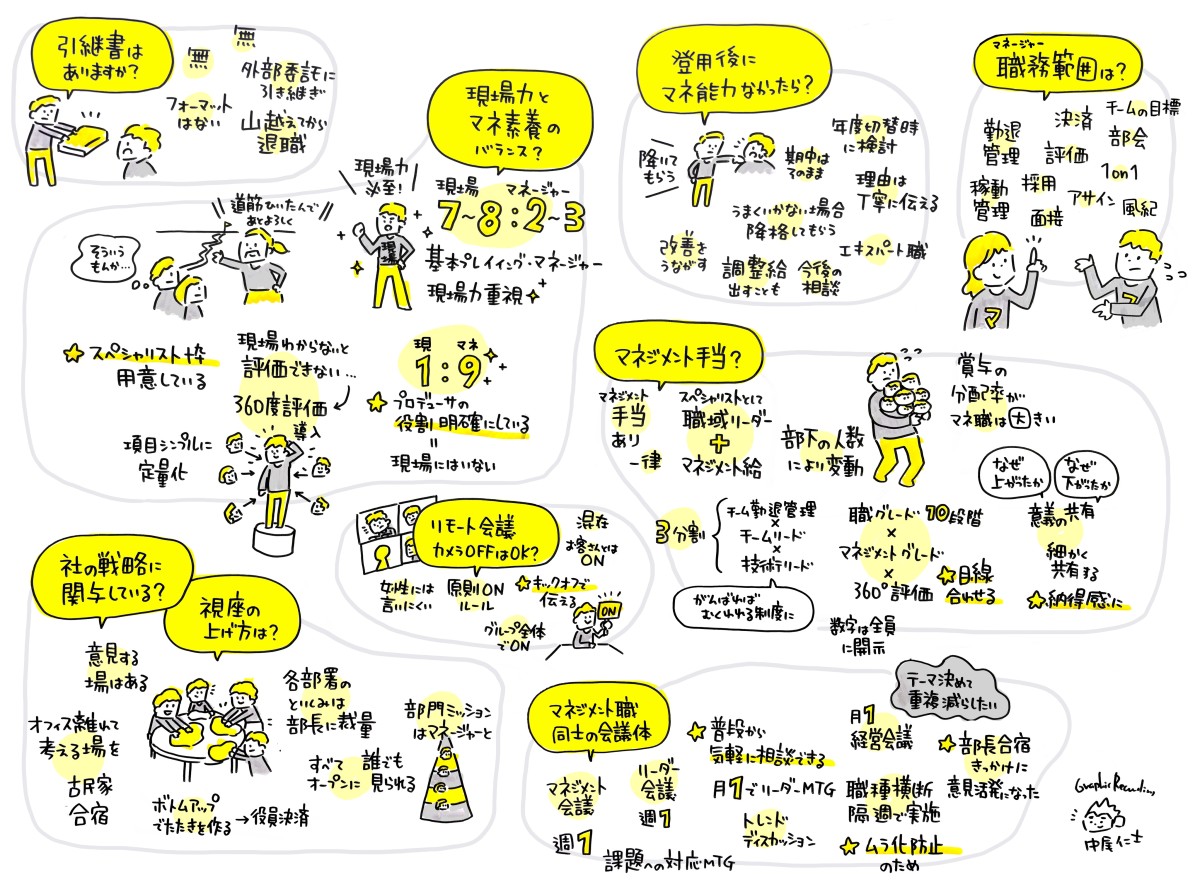 引継書は
ありますか?
無
無
外部委託に
引き継ぎ
フォーマット
はない
山越えてから
退職
現場力と
マネ素養の
バランス?
現場力
必至!
現場 マネージャー
7~8:2~3
現場
基本プレイング・マネージャー
現場力重視
道筋ひいたんで
あとよろしく
そういう
もんか…
スペシャリスト枠
用意している
現場わからないと
評価できない…
360度評価
導入
項目シンプルに
定量化
現 マネ
1:9
プロデューサの
役割明確にしている
=
現場にはいない
登用後に
マネ能力なかったら?
降りて
もらう
期中は
そのまま
年度切替時
に検討
理由は
丁寧に伝える
うまくいかない場合
降格してもらう
改善を
うながす
調整給
出すことも
今後の
相談
エキスパート職
マネージャー
職務範囲は?
勤退
管理
決済
チームの目標
部会
評価
1on1
稼動
管理
採用
面接
アサイン
風紀
マ
マ
マネジメント手当?
マネジメント
手当
あり
一律
スペシャリストとして
職域リーダー
+
マネジメント給
部下の人数
により変動
賞与の
分配率が
マネ職は大きい
なぜ
上がったか
なぜ
下がったか
意義の共有
細かく
共有する
納得感に
3分割
チーム勤退管理
×
チームリード
×
技術リード
がんばれば
むくわれる制度に
職グレード10段階
×
マネジメントグレード
×
360°評価
目線
合わせる
数字は全員
に開示
リモート会議
カメラOFFはOK?
混在
お客さんとは
ON
女性には
言いにくい
原則ON
ルール
キックオフで
伝える
グループ全体
でON
ON
社の戦略に
関与している?
視座の
上げ方は?
意見する
場はある
オフィス離れて
考える場を
古民家
合宿
各部署の
といくみは
部長に裁量
すべて
オープンに
誰でも
見られる
ボトムアップ
でたたきを作る→役員決済
部門ミッション
はマネージャーと
マネジメント職
同士の会議体
マネジメント
会議
週1
リーダー
会議
週1
課題への対応MTG
普段から
気軽に相談できる
月1でリーダーMTG
トレンド
ディスカッション
テーマ決めて
重複減らしたい
月1
経営会議
職種横断
隔週で実施
ムラ化防止
のため
部長合宿
きっかけに
意見活発になった
Graphic Recording
中尾仁士